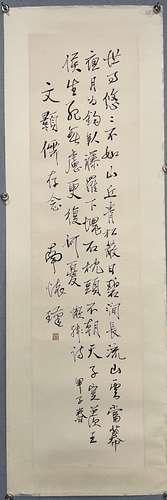 世事悠々不如山丘青松蔽日碧澗長流山雲當幕
夜月為鈎臥藤蘿下塊石枕頭不朝天子豈羨王
侯生死無慮更復何憂 懶殘詩 甲子春
文顯儒存念
南懷瑾